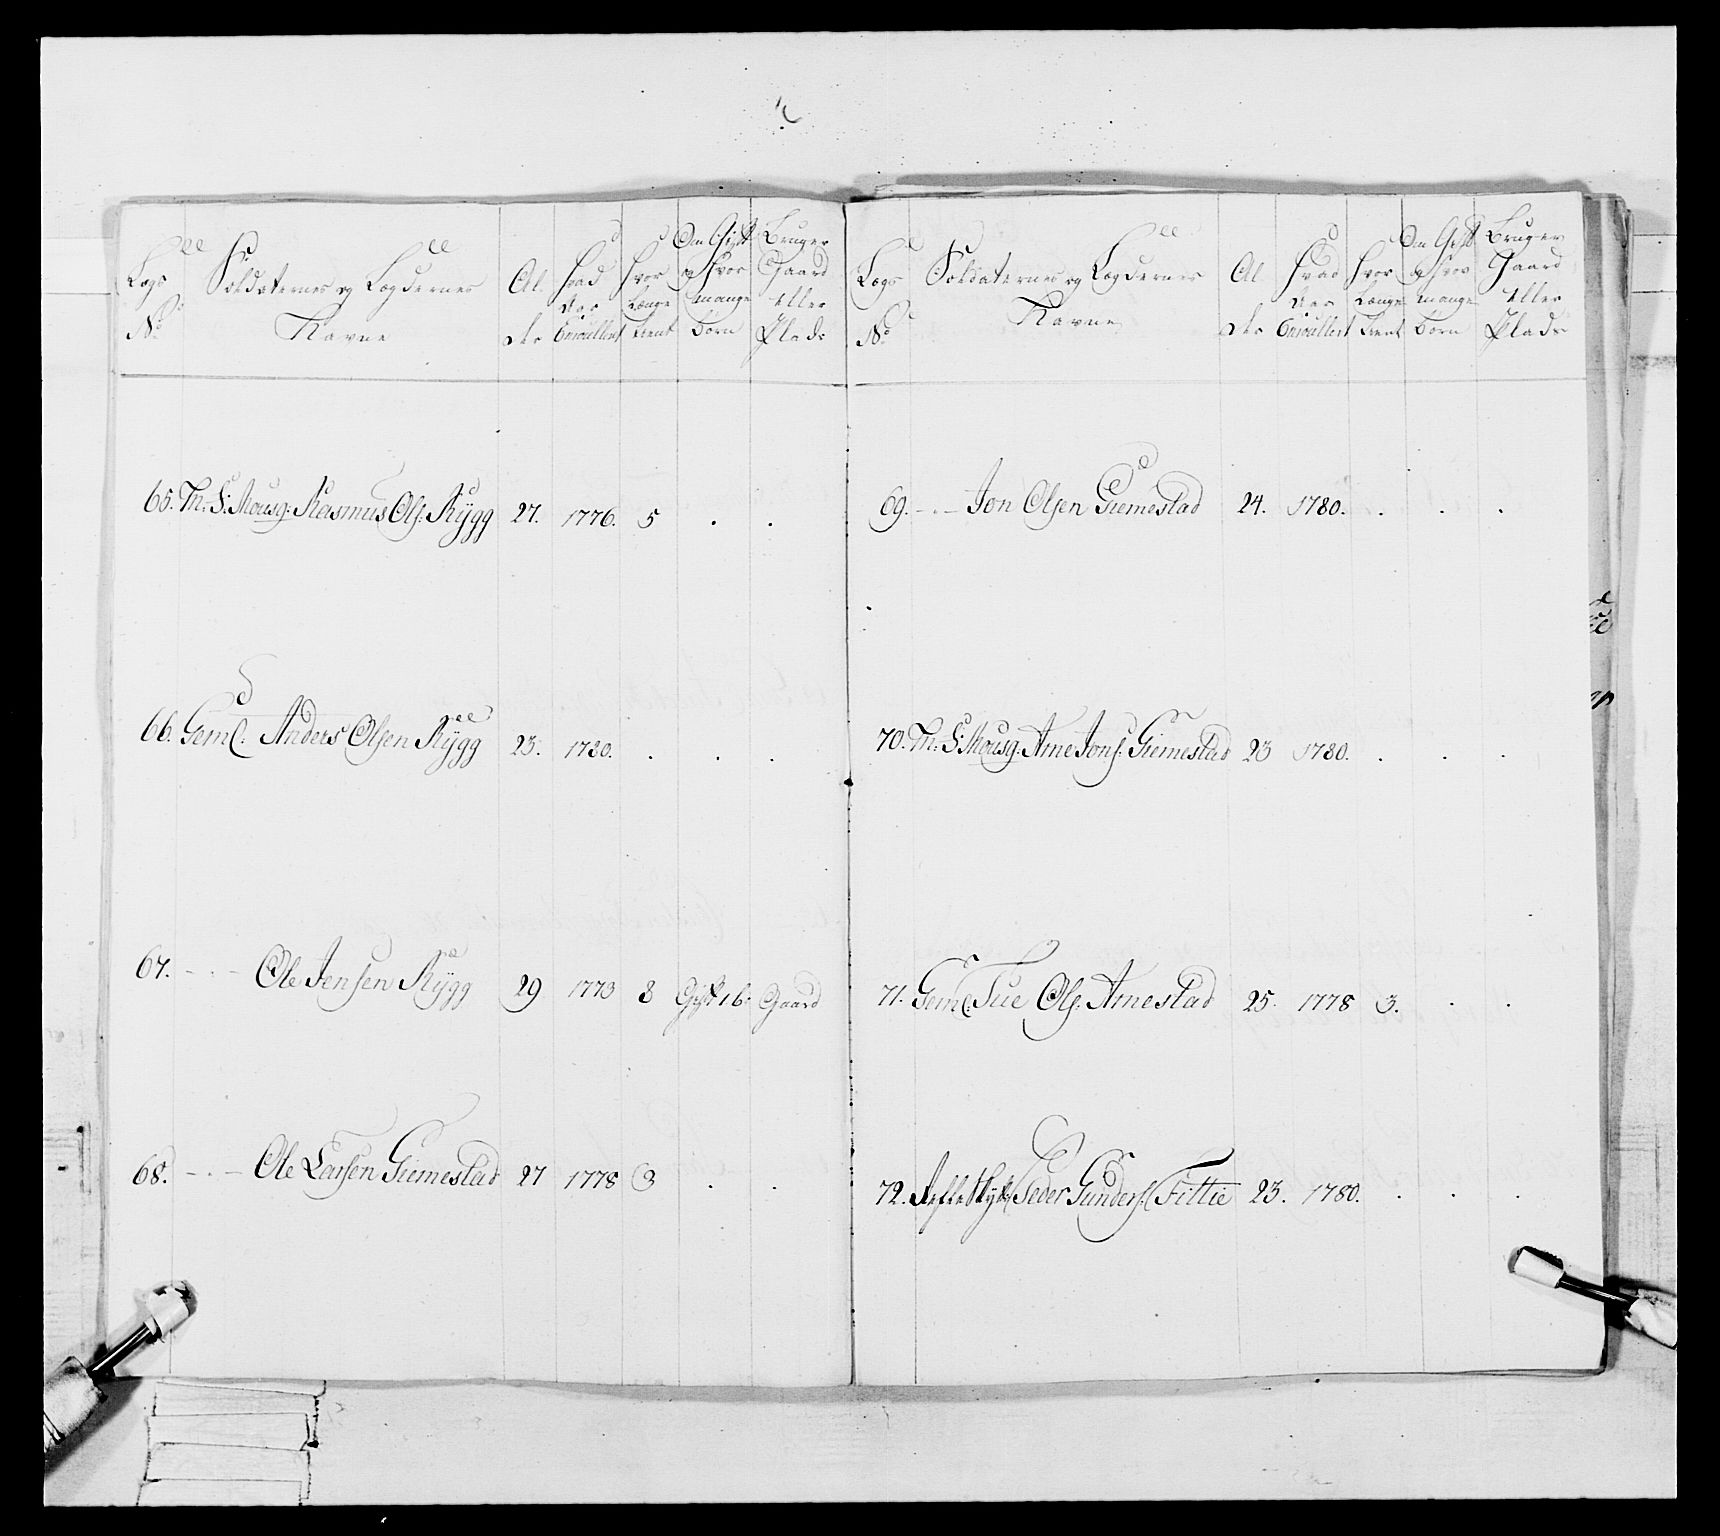 Legs No
Soldaternes og Legdernes Navne
Alder
Hvad der Enroullert
Hvor Længe tient
Om Gift og Hvor mange børn
Bruger Gaard eller Plads
65. Th: S: Mousq: Rasmus Ols: Rÿgg 27. 1776. 5 . .
66. Geml. Anders Olsen Rÿgg 23. 1780. . . .
67. -.- Ole Jensen Rÿgg 29 1773 8 Gift 1 b: Gaard
68. -.- Ole Larsen Giemestad 27 1778 3 . .
Legs No
Soldaternes og Legdernes Navne
Alder
Hvad der Enroullert
Hvor Længe tient
Om Gift og Hvor mange børn
Bruger Gaard eller Plads
69. -.- Jon Olsen Giemestad 24. 1780. . . .
70. Th: S: Mousq: Arne Jons: Giemestad 23 1780. . . .
71. Geml. Tue Ols: Arnestad 25. 1778 3. . .
72. Peder Gunders: Fittie 23. 1780. . . .